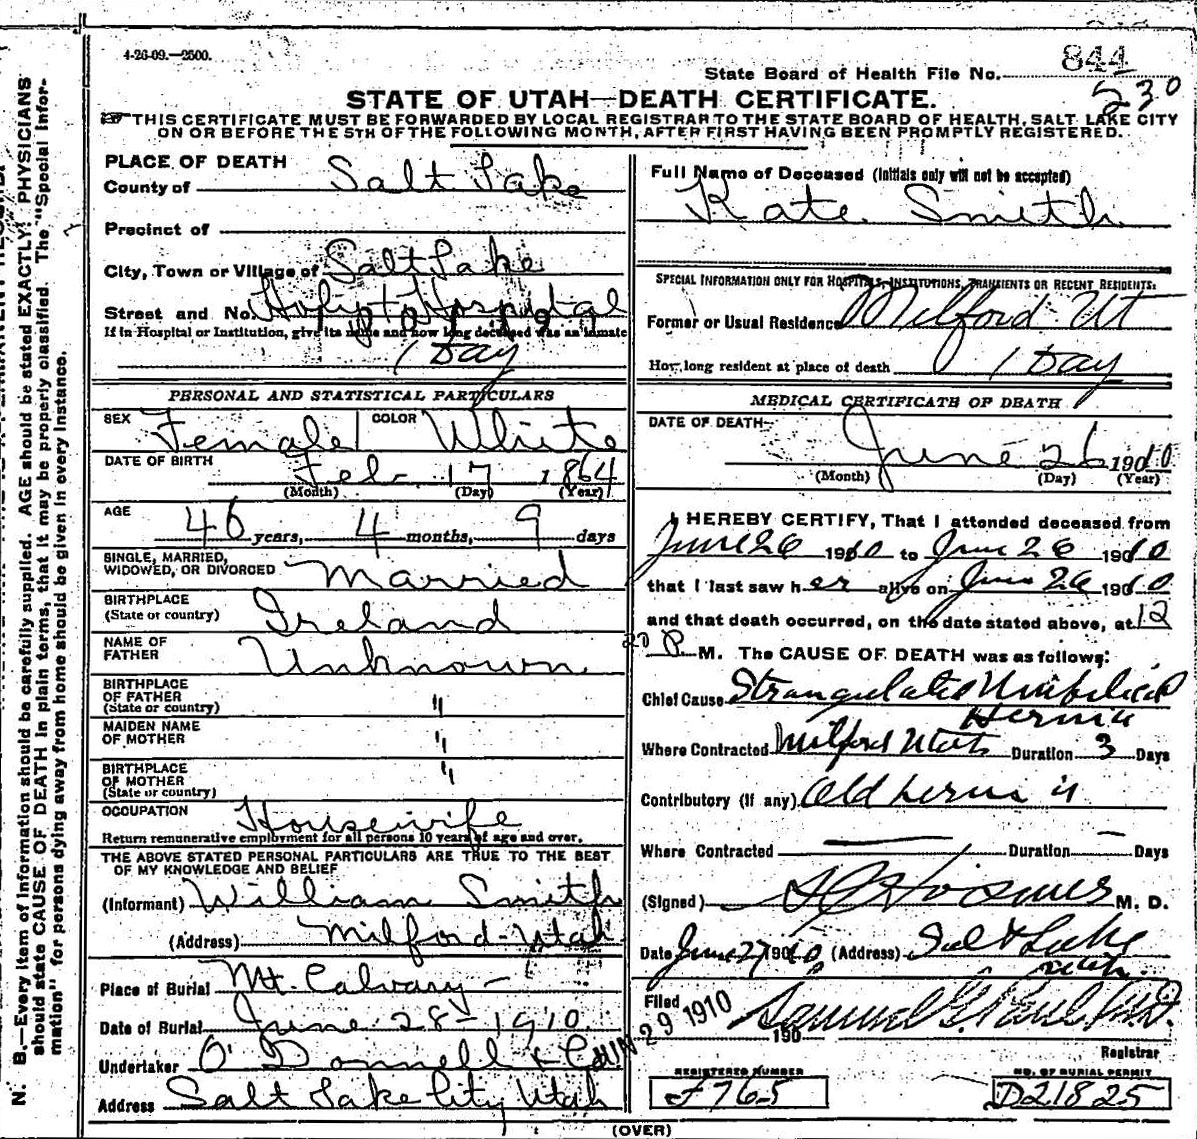 4-26-09.—2500.
844
State Board of Health File No.
530
STATE OF UTAH—DEATH CERTIFICATE.
THIS CERTIFICATE MUST BE FORWARDED BY LOCAL REGISTRAR TO THE STATE BOARD OF HEALTH, SALT LAKE CITY
ON OR BEFORE THE 5TH OF THE FOLLOWING MONTH, AFTER FIRST HAVING BEEN PROMPTLY REGISTERED.
PLACE OF DEATH
County of Salt Lake
Precinct of
City, Town or Village of Salt Lake
Street and No. Holy + Hospital
If in Hospital or Institution, give its name and how long deceased was an inmate
1 Day
PERSONAL AND STATISTICAL PARTICULARS
SEX Female COLOR White
DATE OF BIRTH Feb 17 1864
(Month) (Day) (Year)
AGE 46 years, 4 months, 9 days
SINGLE, MARRIED,
WIDOWED, OR DIVORCED Married
BIRTHPLACE
(State or country) Ireland
NAME OF
FATHER Unknown
BIRTHPLACE
OF FATHER
(State or country) "
MAIDEN NAME
OF MOTHER "
BIRTHPLACE
OF MOTHER
(State or country) "
OCCUPATION Housewife
Return remunerative employment for all persons 10 years of age and over.
THE ABOVE STATED PERSONAL PARTICULARS ARE TRUE TO THE BEST
OF MY KNOWLEDGE AND BELIEF
(Informant) William Smith
(Address) Milford Utah
Place of Burial Mt. Calvary
Date of Burial June 28 - 1910
Undertaker O'Donnell & Co
Address Salt Lake City Utah
Full Name of Deceased (Initials only will not be accepted)
Kate Smith
SPECIAL INFORMATION ONLY FOR HOSPITALS, INSTITUTIONS, TRANSIENTS OR RECENT RESIDENTS:
Former or Usual Residence Milford Ut
How long resident at place of death 1 Day
MEDICAL CERTIFICATE OF DEATH
DATE OF DEATH
June 26 1910
(Month) (Day) (Year)
I HEREBY CERTIFY, That I attended deceased from
June 26 1910 to June 26 1910
that I last saw her alive on June 26 1910
and that death occurred, on the date stated above, at 12
20 P. M. The CAUSE OF DEATH was as follows:
Chief Cause Strangulated Umbilical
Hernia
Where Contracted Milford Utah Duration 3 Days
Contributory (If any) Old hernia
Where Contracted — Duration — Days
(Signed) M. D.
Date June 27 1910 (Address) Salt Lake
Utah
Filed JUN 29 1910 Samuel G. Paul M.D.
190
Registrar
REGISTERED NUMBER
F765
NO. OF BURIAL PERMIT
D21825
(OVER)
N. B.—Every item of information should be carefully supplied. AGE should be stated EXACTLY. PHYSICIANS
should state CAUSE OF DEATH in plain terms, that it may be properly classified. The "Special Infor-
mation" for persons dying away from home should be given in every instance.